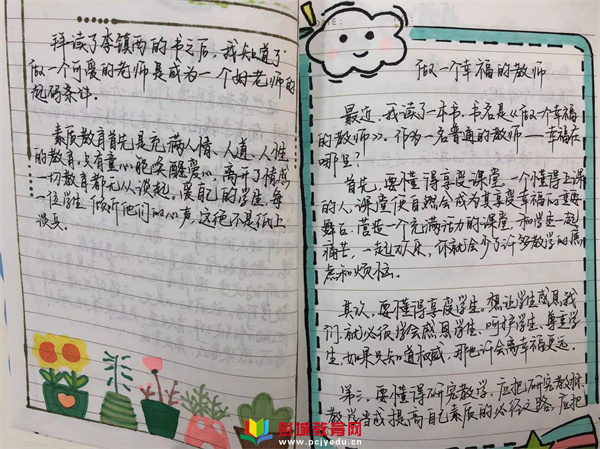 拜读了李镇西的书之后，我知道了
做一个可爱的老师是成为一个好老师的
起码条件。
素质教育首先是充满人情、人道、人性
的教育。只有童心能唤醒爱心，离开了情感，
一切教育都无从谈起。爱自己的学生，每
一位学生，倾听他们的心声，这绝不是纸上
谈兵。
做一个幸福的教师
最近，我读了一本书，书名是《做一个幸福
的教师》。作为一名普通的教师——幸福在
哪里？
首先，要懂得享受课堂。一个懂得上课
的人，课堂便自然会成为其享受幸福的重要
舞台。营造一个充满活力的课堂，和学生一起
痛苦，一起欢乐，你就会少了许多教学的焦
虑和烦恼。
其次，要懂得享受学生。想让学生感恩我
们，就必须学会感恩学生，呵护学生，尊重学
生，如果只知道权威，那也许会离幸福更远。
第三，要懂得研究教学。应把研究教材
教学当成提高自己素质的必经之路，应把
彭城教育网
www.pcjyedu.cn